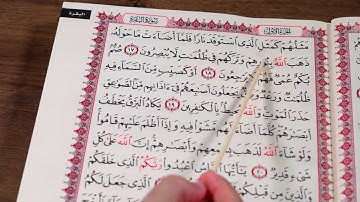 البقرة
سُورَةُ البَقَرَةِ الجُزْءُ الأَوَّلُ
مَثَلُهُمْ كَمَثَلِ ٱلَّذِى ٱسْتَوْقَدَ نَارًا فَلَمَّآ أَضَآءَتْ مَا حَوْلَهُۥ
ذَهَبَ ٱللَّهُ بِنُورِهِمْ وَتَرَكَهُمْ فِى ظُلُمَٰتٍ لَّا يُبْصِرُونَ ١٧ صُمٌّۢ
بُكْمٌ عُمْىٌ فَهُمْ لَا يَرْجِعُونَ ١٨ أَوْ كَصَيِّبٍ مِّنَ ٱلسَّمَآءِ فِيهِ
ظُلُمَٰتٌ وَرَعْدٌ وَبَرْقٌ يَجْعَلُونَ أَصَٰبِعَهُمْ فِىٓ ءَاذَانِهِم مِّنَ
ٱلصَّوَٰعِقِ حَذَرَ ٱلْمَوْتِ وَٱللَّهُ مُحِيطٌۢ بِٱلْكَٰفِرِينَ ١٩ يَكَادُ ٱلْبَرْقُ يَخْطَفُ
أَبْصَٰرَهُمْ كُلَّمَآ أَضَآءَ لَهُم مَّشَوْا۟ فِيهِ وَإِذَآ أَظْلَمَ عَلَيْهِمْ قَامُوا۟
وَلَوْ شَآءَ ٱللَّهُ لَذَهَبَ بِسَمْعِهِمْ وَأَبْصَٰرِهِمْ إِنَّ ٱللَّهَ عَلَىٰ كُلِّ
شَىْءٍ قَدِيرٌ ٢٠ يَٰٓأَيُّهَا ٱلنَّاسُ ٱعْبُدُوا۟ رَبَّكُمُ ٱلَّذِى خَلَقَكُمْ
وَٱلَّذِينَ مِن قَبْلِكُمْ ٱلَّذِى جَعَلَ لَكُمُ